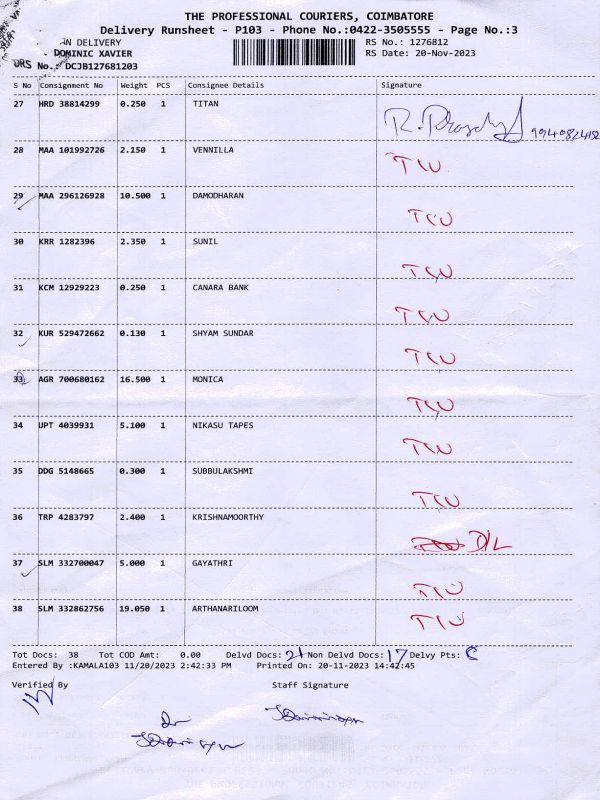 THE PROFESSIONAL COURIERS, COIMBATORE
Delivery Runsheet - P103 - Phone No.:0422-3505555 - Page No.:3
AN DELIVERY RS No.: 1276812
DOMINIC XAVIER RS Date: 20-Nov-2023
DRS No.: DCJB127681203
S No Consignment No Weight PCS Consignee Details Signature
27 HRD 38814299 0.250 1 TITAN
9940824152
28 MAA 101992726 2.150 1 VENNILLA
29 MAA 296126928 10.500 1 DAMODHARAN
30 KRR 1282396 2.350 1 SUNIL
31 KCM 12929223 0.250 1 CANARA BANK
32 KUR 529472662 0.130 1 SHYAM SUNDAR
33 AGR 700680162 16.500 1 MONICA
34 UPT 4039931 5.100 1 NIKASU TAPES
35 DDG 5148665 0.300 1 SUBBULAKSHMI
36 TRP 4283797 2.400 1 KRISHNAMOORTHY
D/L
37 SLM 332700047 5.000 1 GAYATHRI
38 SLM 332862756 19.050 1 ARTHANARILOOM
Tot Docs: 38 Tot COD Amt: 0.00 Delvd Docs: 21 Non Delvd Docs: 17 Delvy Pts:
Entered By :KAMALA103 11/20/2023 2:42:33 PM Printed On: 20-11-2023 14:42:45
Verified By Staff Signature